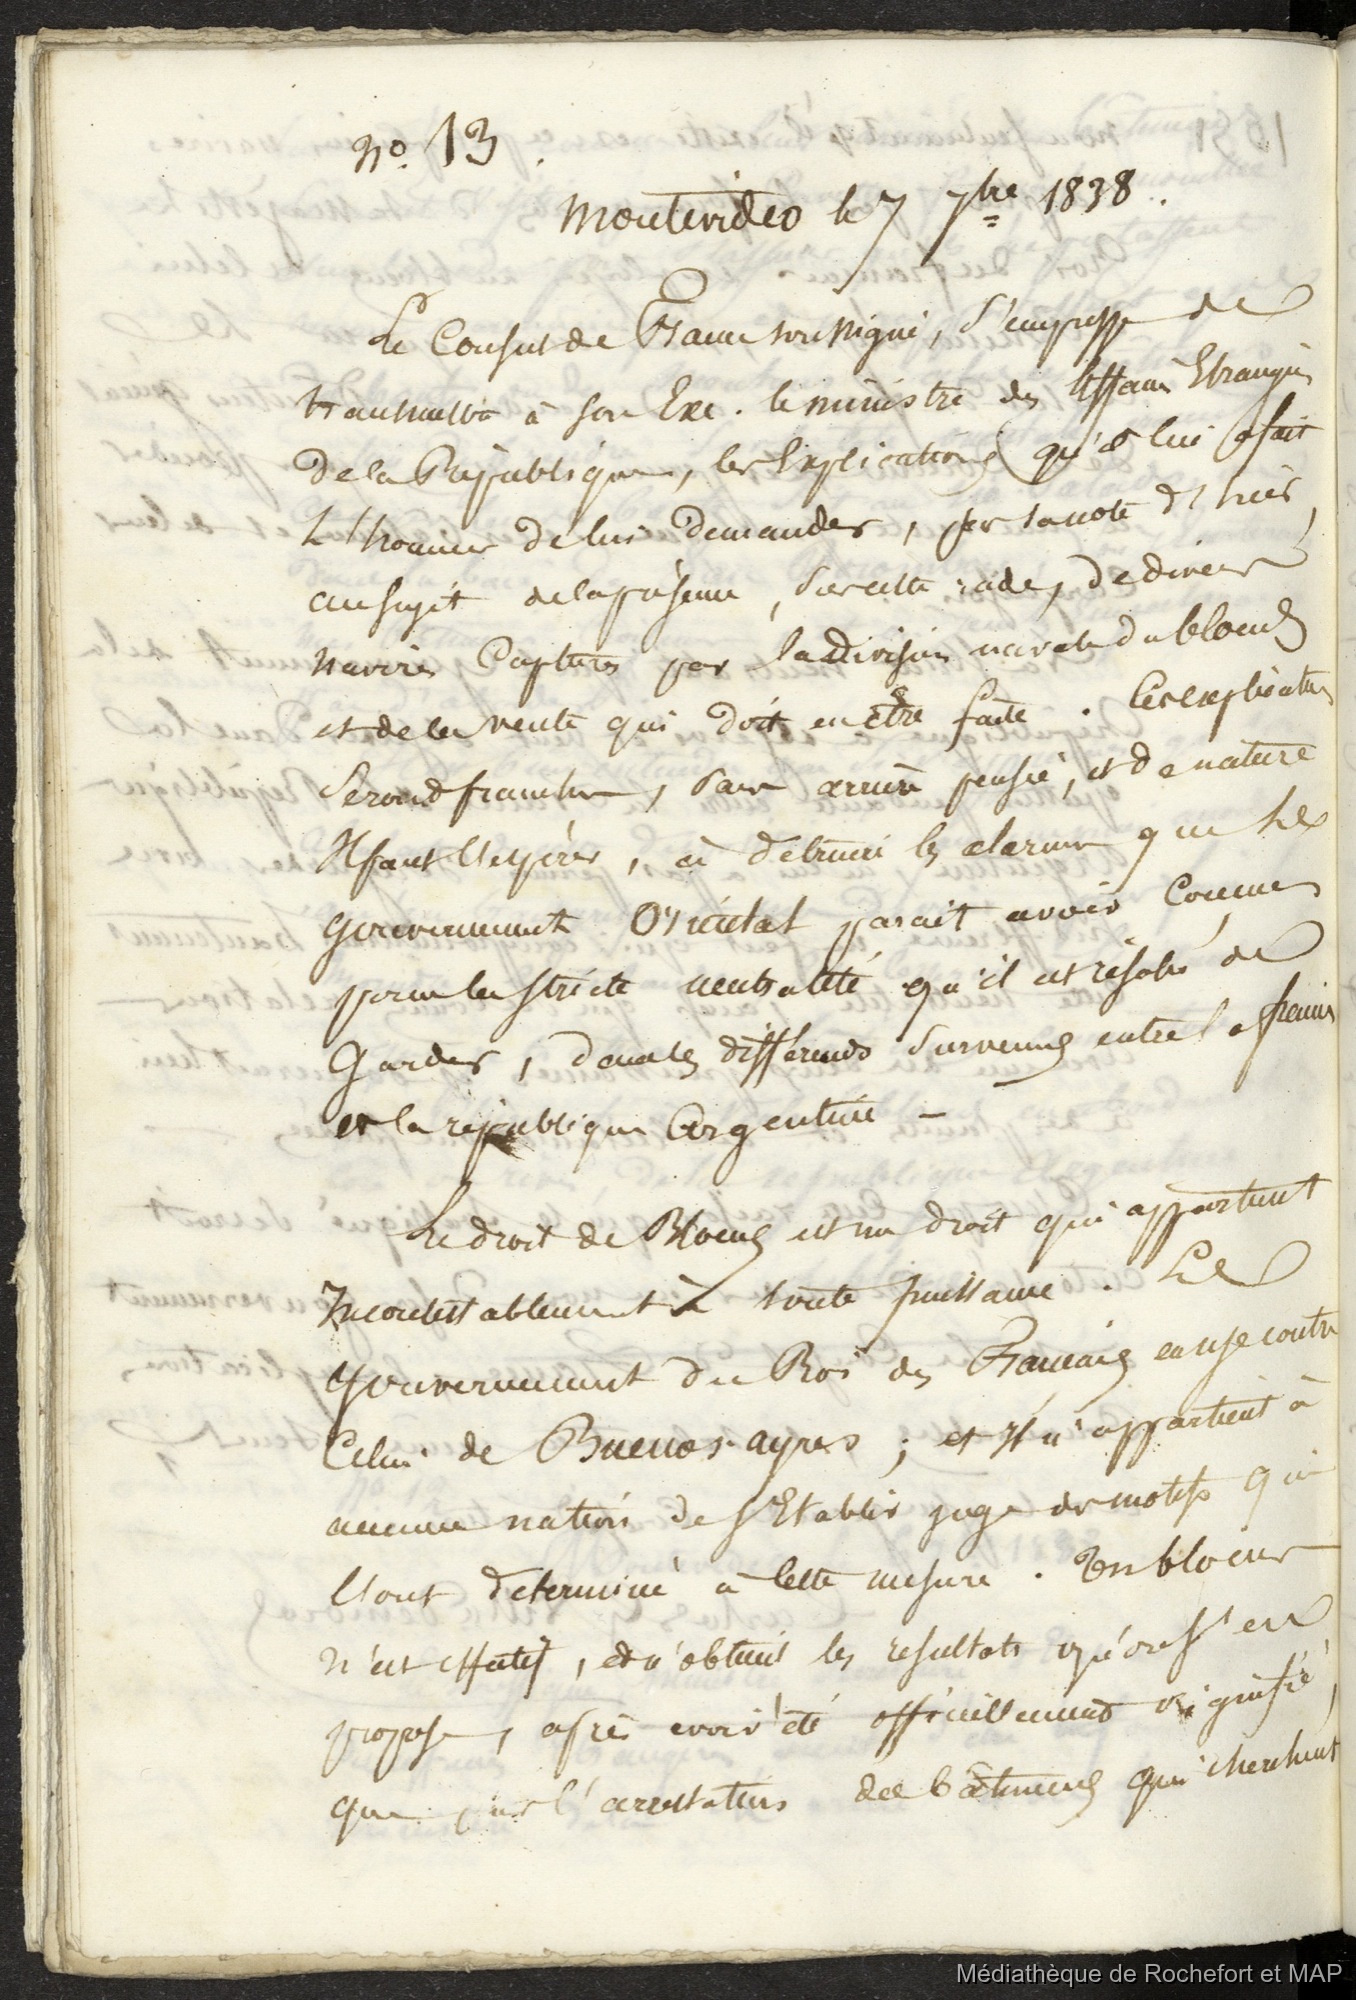 No. 13.
Montevideo le 7 7bre 1838.
Le Consul de France soussigné, s'empresse de
transmettre à son Exc. le ministre des Affaires Etrangères
de la République, les Explications qu'il lui a fait
l'honneur de lui demander, par sa note d'hier,
au sujet de la présence, sur cette rade, de divers
navires Capturés par la division navale du blocus
et de la vente qui doit en être faite. Ces explications
seront franches, sans arrière pensée, et de nature
Il faut l'espérer, à détruire les alarmes que le
gouvernement Oriental parait avoir Conçues
pour la stricte neutralité qu'il est résolu de
Garder, dans les différends survenus entre la france
et la république Argentine —
Le droit de Blocus est un droit qui appartient
Incontestablement à toute puissance. Le
gouvernement du Roi des Français en use contre
Celui de Buenos-ayres ; et Il n'appartient à
aucune nation de s'Etablir juge des motifs qui
l'ont déterminé à Cette mesure. Un blocus
n'est effectif, et n'obtient les resultats qu'on s'en
propose, après avoir été officiellement signifié,
que par l'arrestation des bâtimens qui cherchent
Médiathèque de Rochefort et MAP